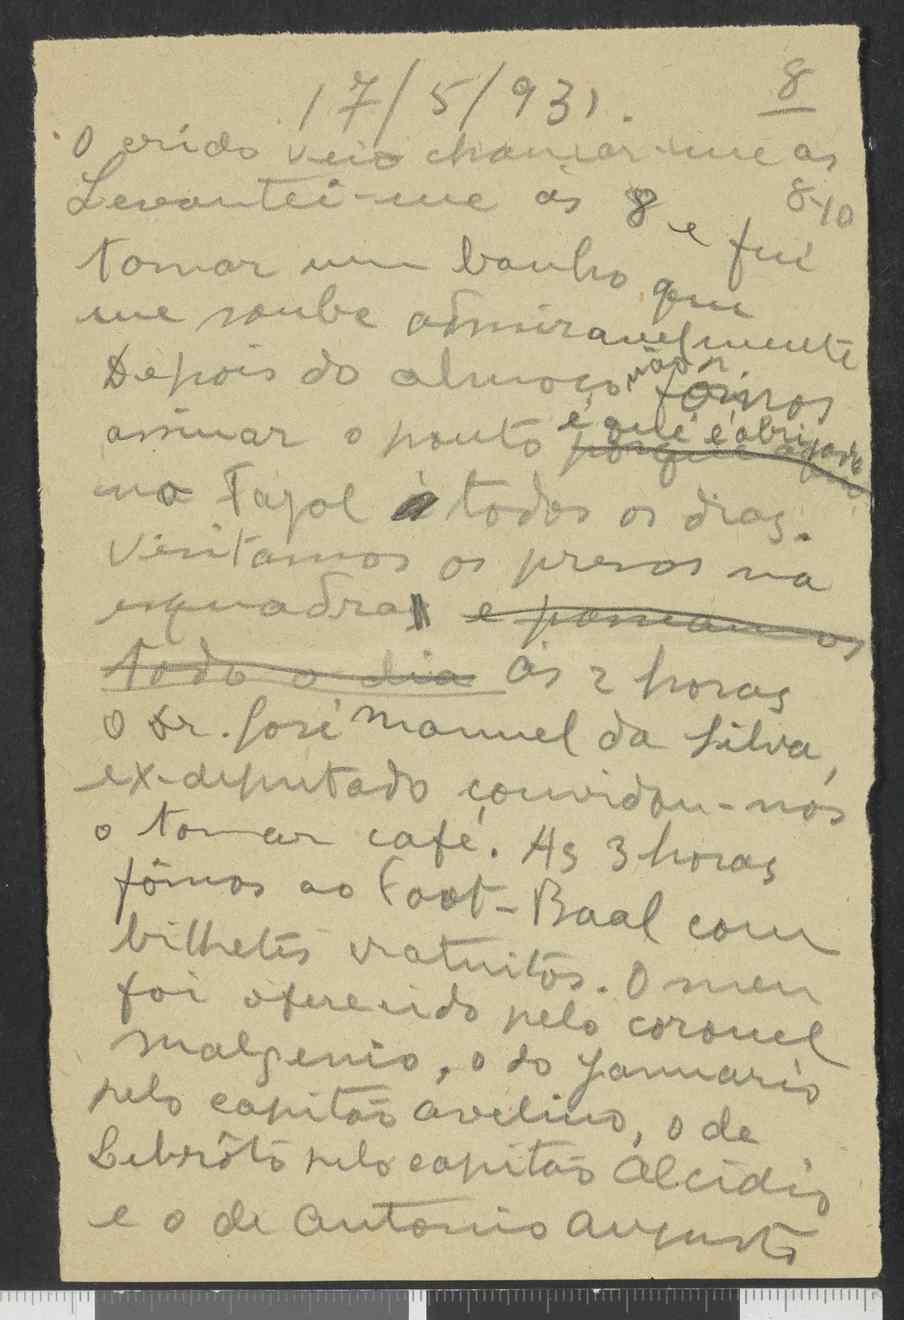 8
17/5/931.
O criado veio chamar-me as
8-10
Levantei-me ás 8 e fui
tomar um banho que
me soube admiravelmente
Depois do almoço não fômos
assinar o ponto porque
é que é obrigado
no Fayal á todos os dias.
Visitamos os presos na
esquadra e passeamos
todo o dia Ás 2 horas
O Dr. José Manuel da Silva,
ex-deputado convidou-nos
a tomar café. As 3 horas
fômos ao Foot-Baal com
bilhetes gratuitos. O meu
foi oferecido pelo coronel
Malgenio, o do Januario
pelo capitão Avelino, o de
pelo capitão Alcidio
e o de Antonio Augusto